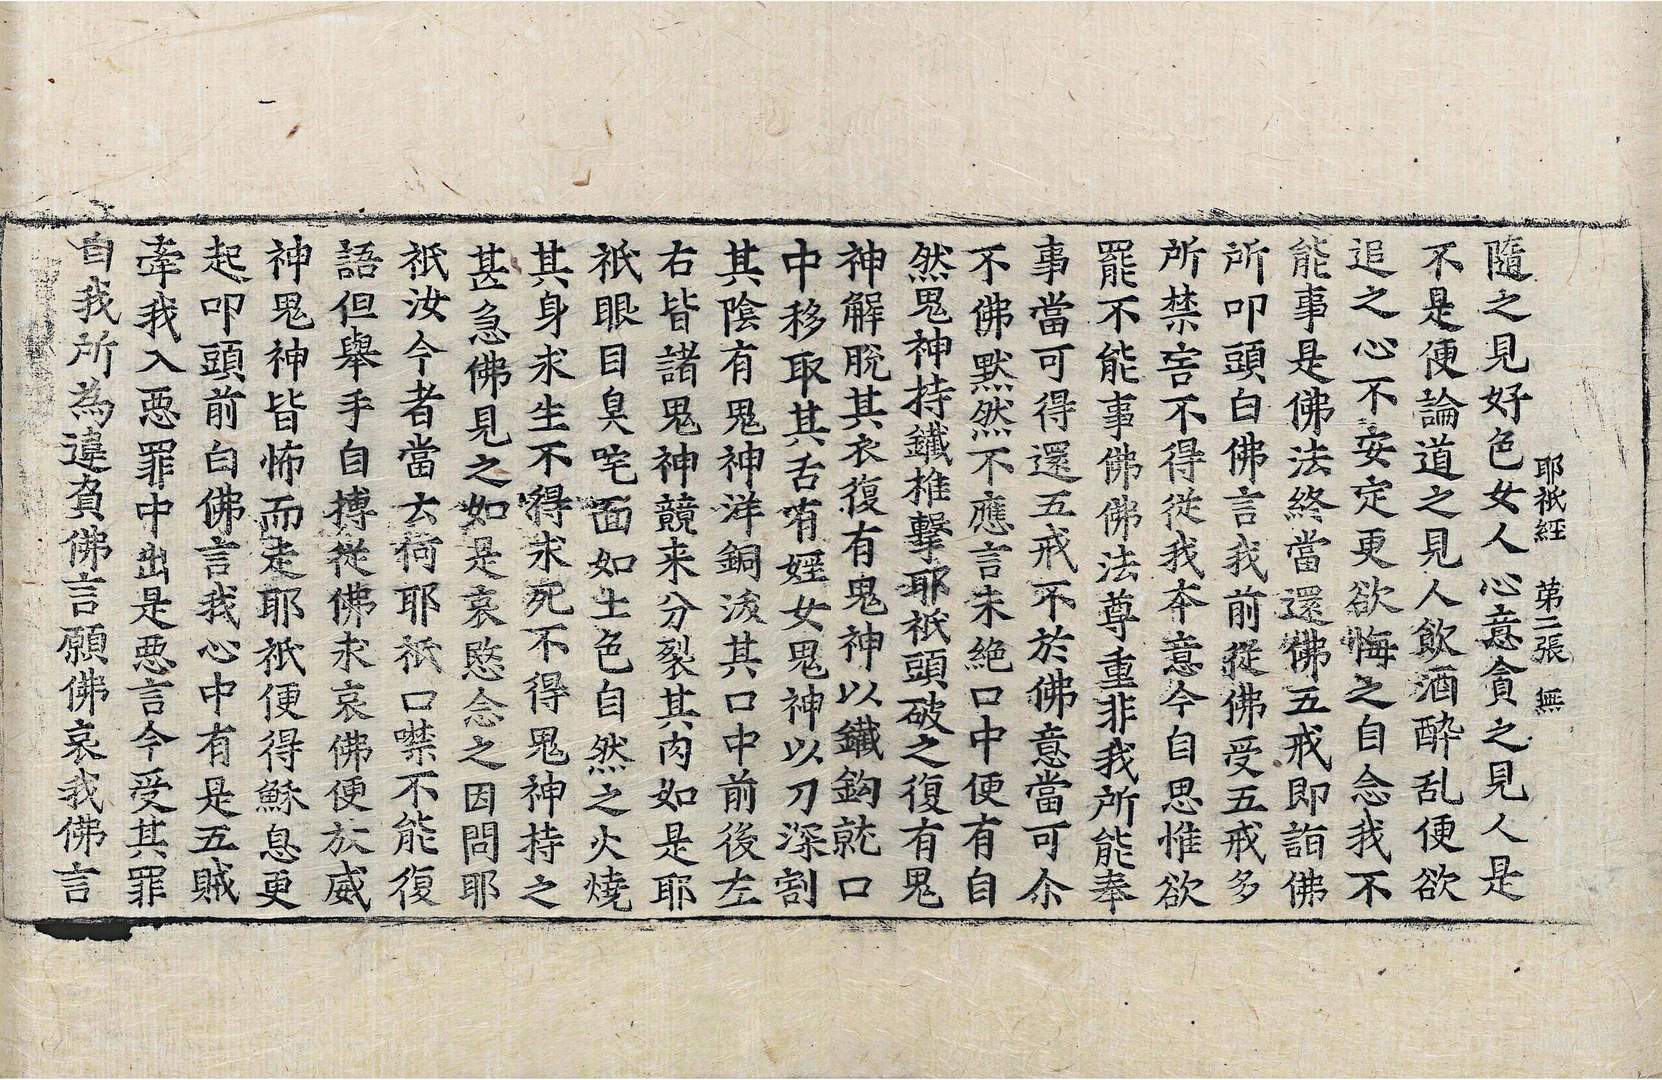 耶祇經 第二張 無
隨之見好色女人心意貪之見人是
不是便論道之見人飮酒醉乱便欲
追之心不安定更欲悔之自念我不
能事是佛法終當還佛五戒即詣佛
所叩頭白佛言我前從佛受五戒多
所禁害不得從我夲意今自思惟欲
罷不能事佛佛法尊重非我所能奉
事當可得還五戒不於佛意當可尒
不佛黙然不應言未絶口中便有自
然鬼神持鐵椎擊耶祇頭破之復有鬼
神解脫其衣復有鬼神以鐵鈎就口
中移取其舌有婬女鬼神以刀深割
其陰有鬼神洋銅沷其口中前後左
右皆諸鬼神競来分裂其肉如是耶
祇眼目臭咤面如土色自然之火燒
其身求生不得求死不得鬼神持之
甚急佛見之如是哀愍念之因問耶
祇汝今者當云何耶祇口噤不能復
語但舉手自搏從佛求哀佛便放威
神鬼神皆怖而走耶祇便得穌息更
起叩頭前白佛言我心中有是五賊
牽我入惡罪中出是惡言今受其罪
自我所為違負佛言願佛哀我佛言